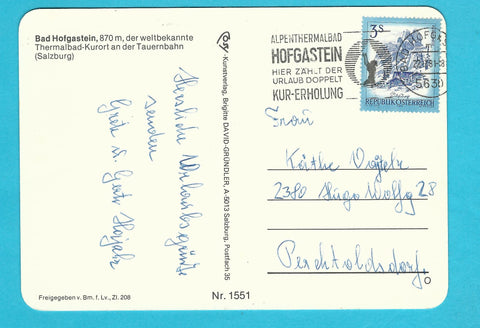 Bad Hofgastein, 870 m, der weltbekannte
Thermalbad-Kurort an der Tauernbahn
(Salzburg)
Herzliche Urlaubsgrüße
senden
Cosy-Kunstverlag, Brigitte DAVID-GRÜNDLER, A-5013 Salzburg, Postfach 35
ALPENTHERMALBAD
HOFGASTEIN
HIER ZÄHLT DER
URLAUB DOPPELT
KUR-ERHOLUNG
3 S
REPUBLIK ÖSTERREICH
5630
Frau
Käthe
2380 Hugo Wolfg 28
Perchtoldsdorf
NÖ
Freigegeben v. Bm. f. Lv., Zl. 208
Nr. 1551